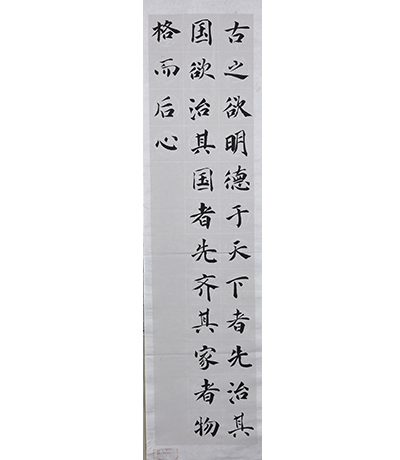 古之欲明德于天下者先治其
国欲治其国者先齐其家者物
格而后心